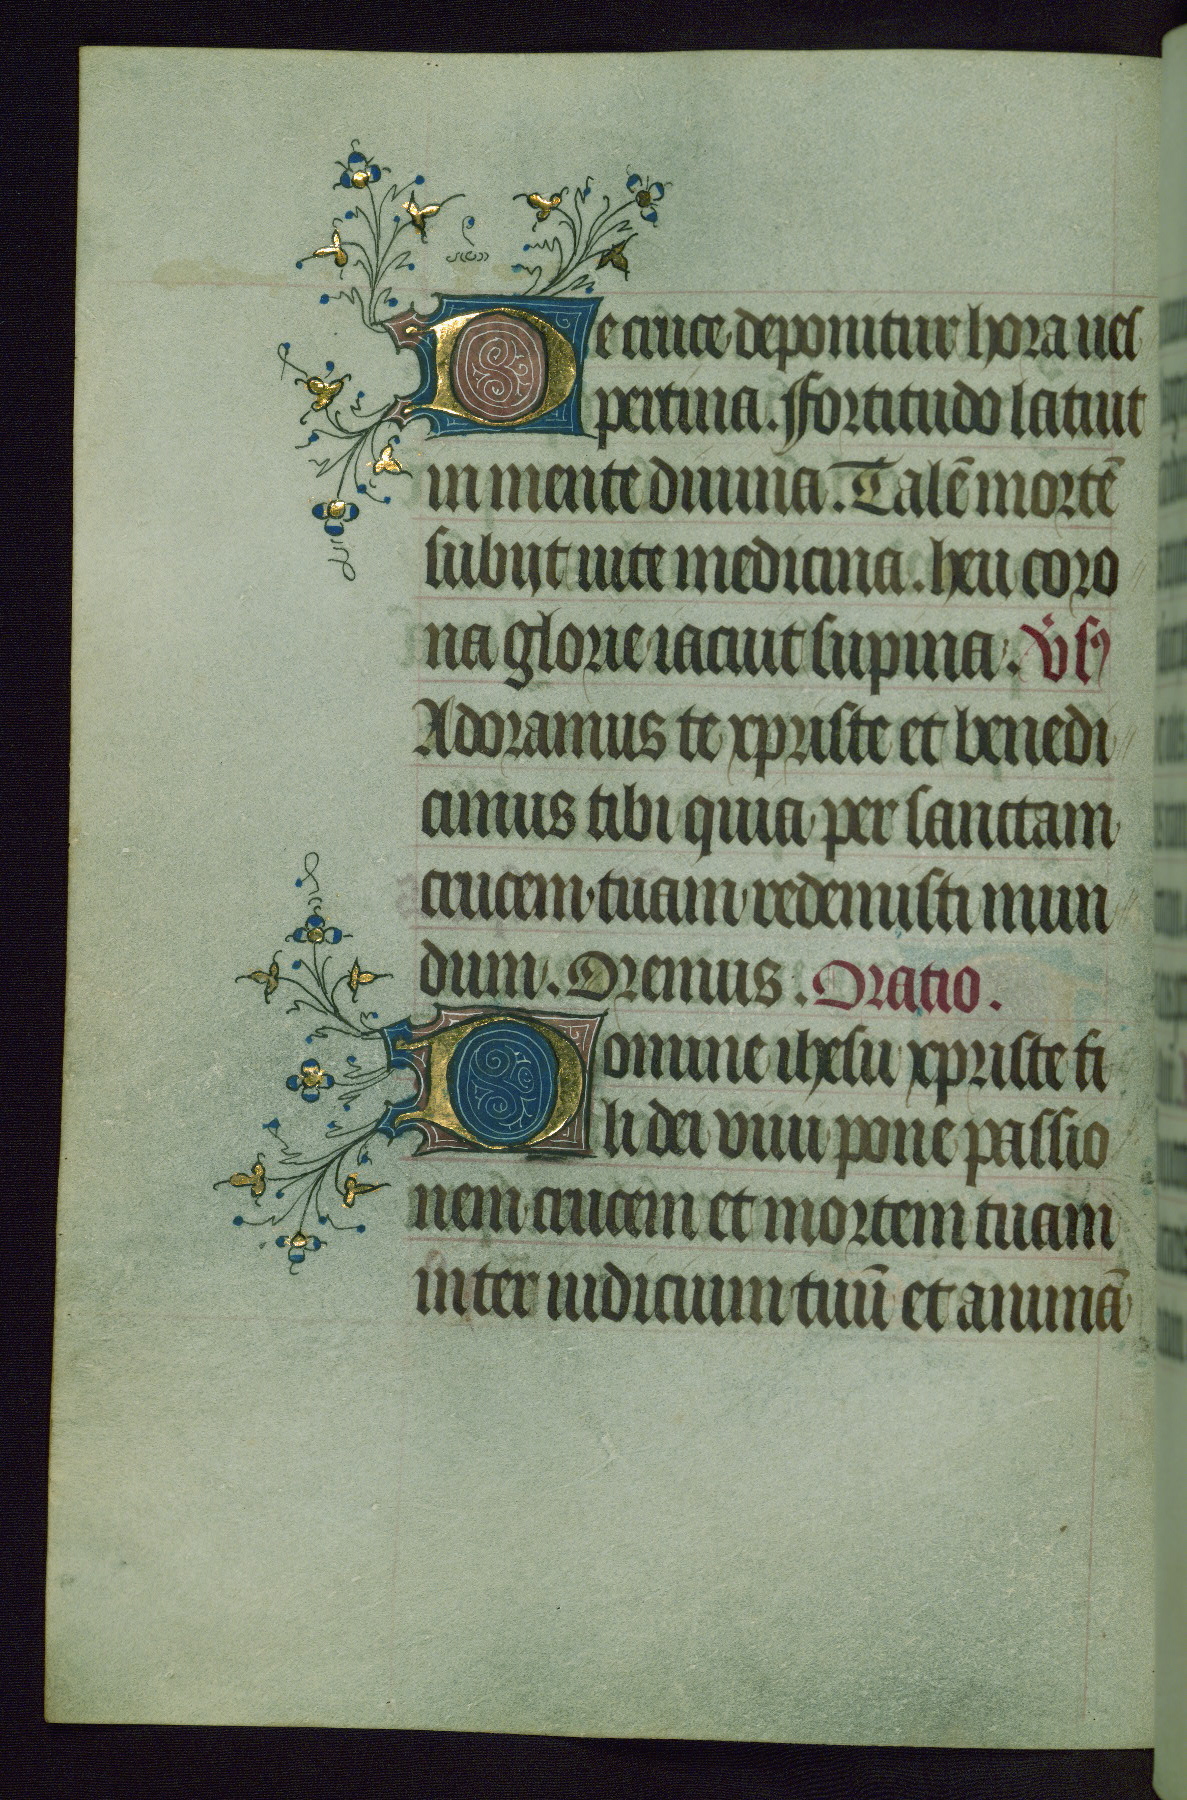 De cruce deponitur hora ves
pertina. Ffortitudo latuit
in mente diuina. Talē mortē
subijt uite medicina. heu coro
na glorie iacuit supina. V̇sꝰ
Adoramus te xpriste et benedi
cimus tibi quia per sanctam
crucem tuam redemisti mun
dum. Oremus. Oratio.
Domine ihesu xpriste fi
li dei viui pone passio
nem crucem et mortem tuam
inter iudicium tuū et animā